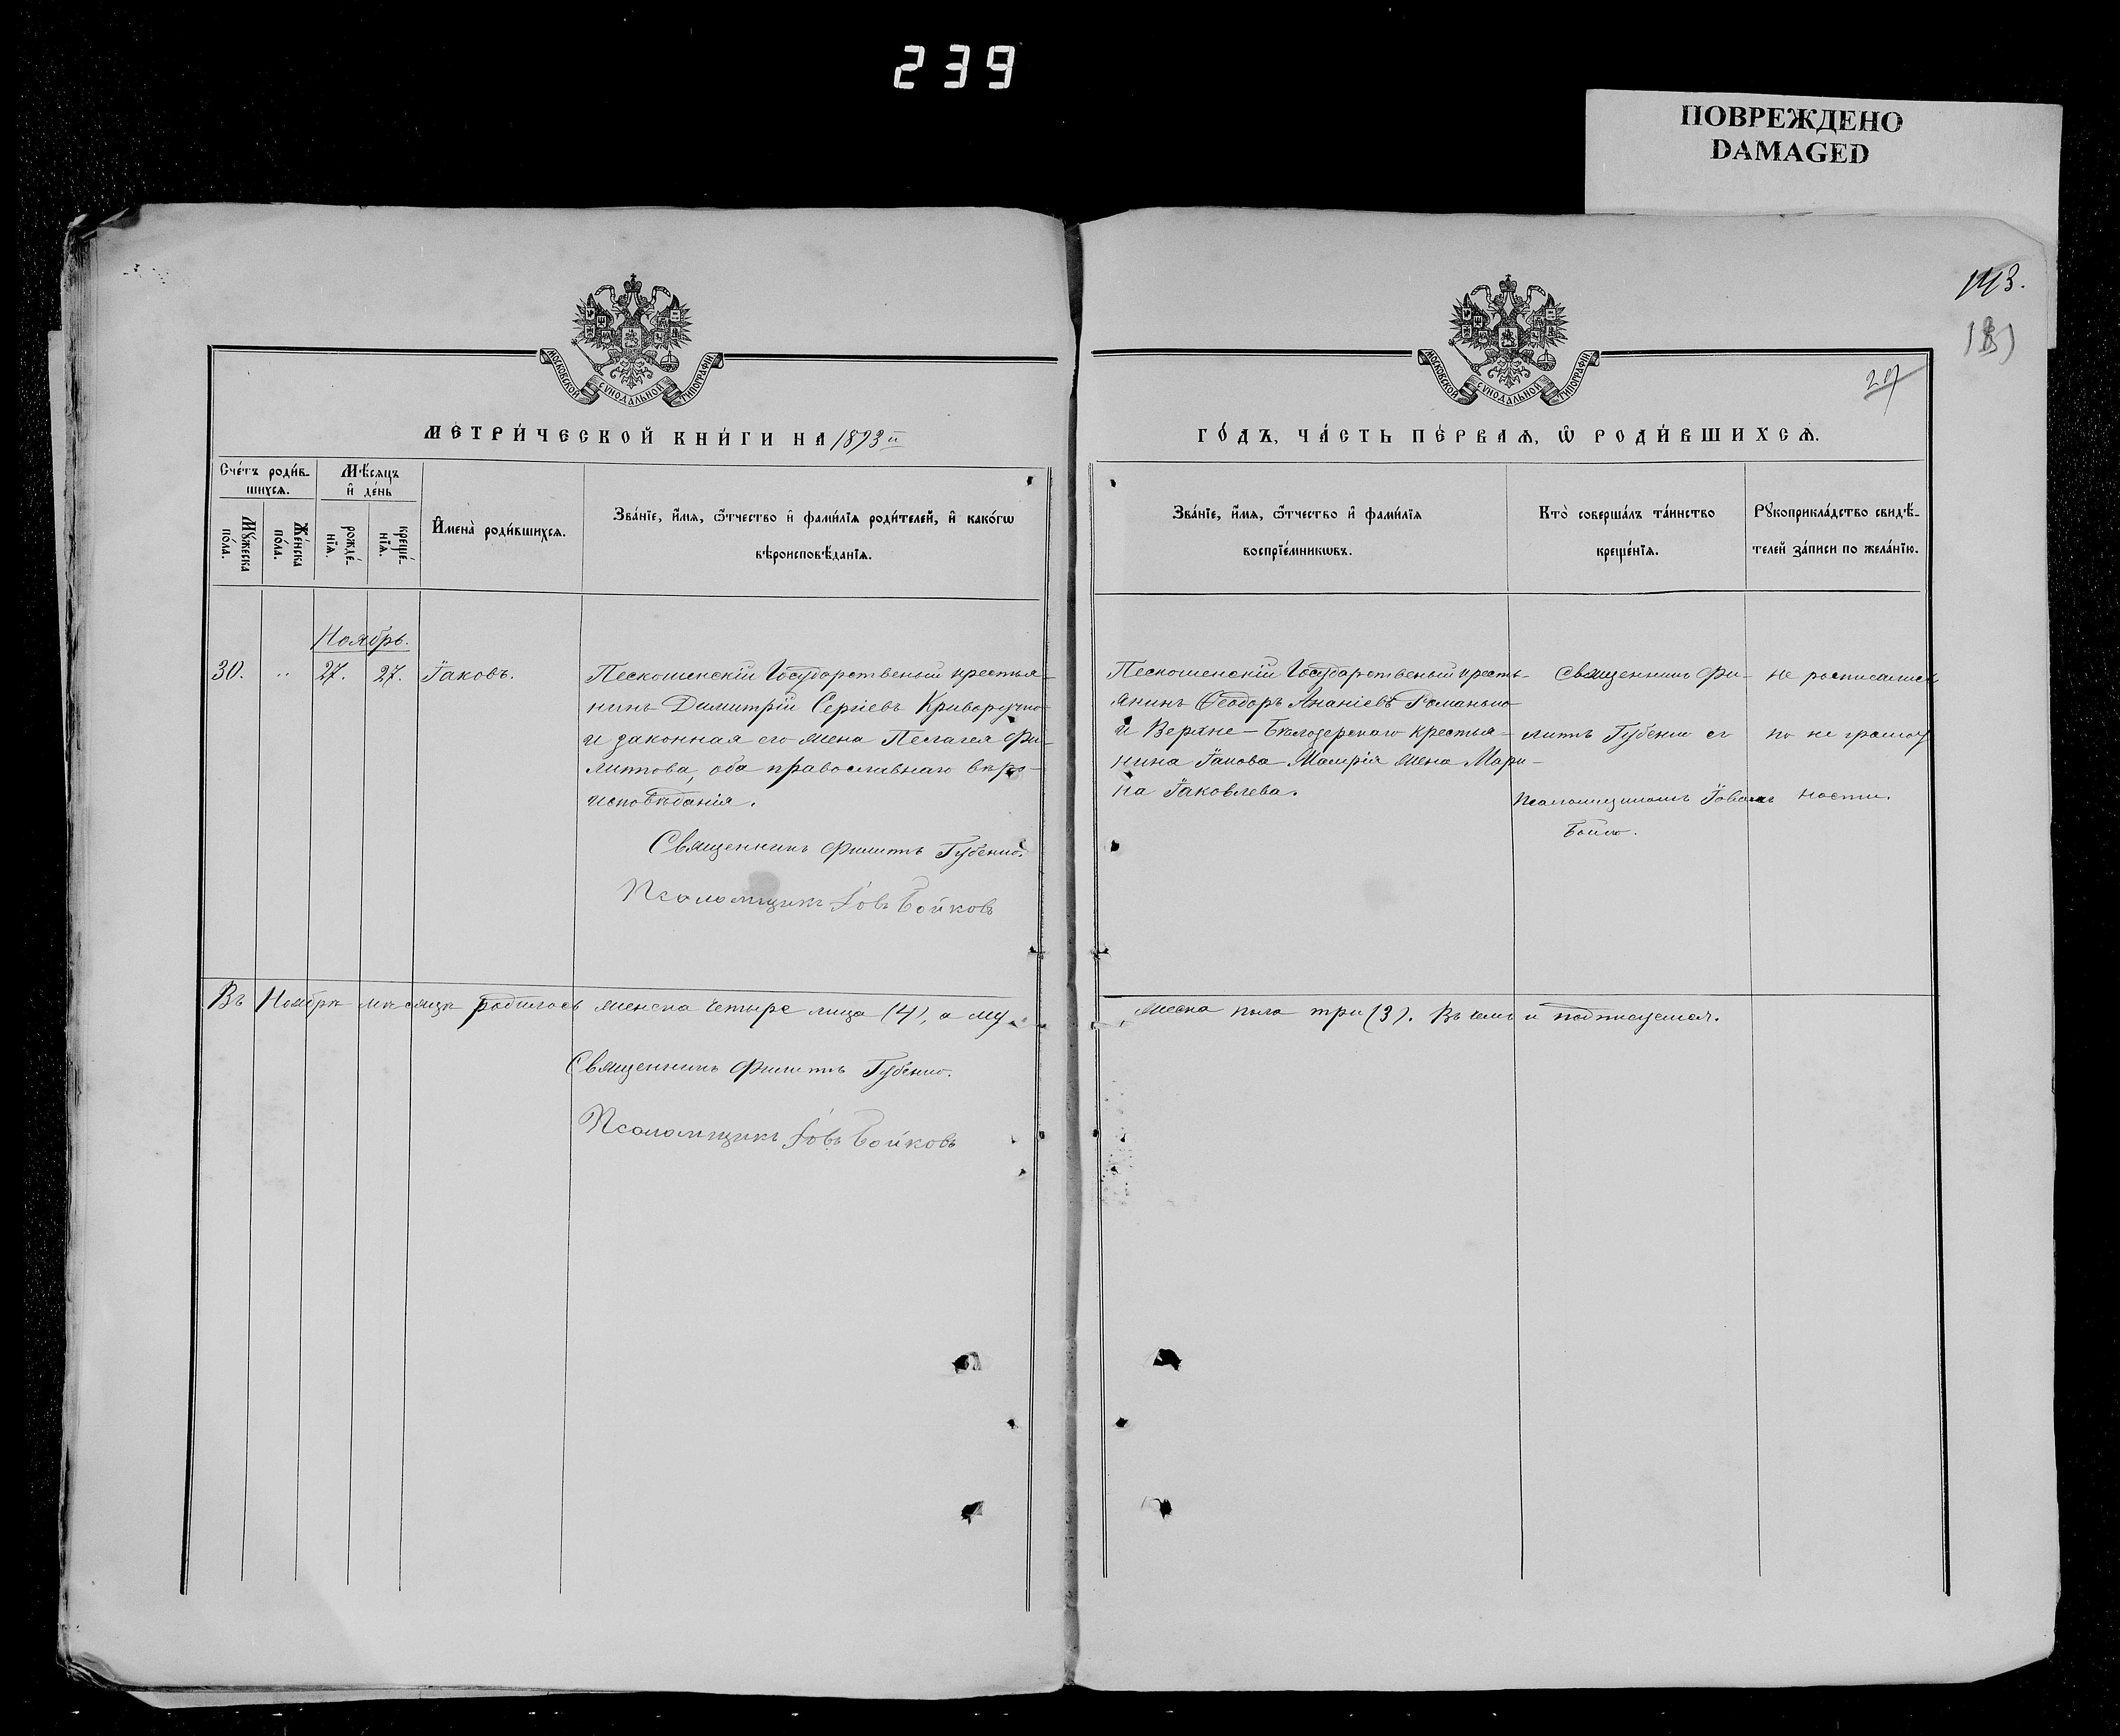 239
ПОВРЕЖДЕНО
DAMAGED
113.
29
МОСКОВСКОЙ СѴНОДАЛЬНОЙ ТИПОГРАФІИ
МОСКОВСКОЙ СѴНОДАЛЬНОЙ ТИПОГРАФІИ
МЕТРИ́ЧЕСКОЙ КНИ́ГИ НА 1893й
ГО́ДЪ, ЧА́СТЬ ПЕ́РВАѦ, Ѡ҆ РОДИ́ВШИХСѦ.
Сче́тъ роди́в-
шихсѧ.
Мѣ́сяцъ
и҆ де́нь
Мꙋ́жеска
по́ла.
Же́нска
по́ла.
рожде́-
нїѧ.
креще́-
нїѧ.
И҆мена̀ роди́вшихсѧ.
Зва́нїе, и҆́мѧ, ѻ҆́тчество и҆ фами́лїѧ роди́телей, и҆ како́гѡ
вѣроисповѣ́данїѧ.
Зва́нїе, и҆́мѧ, ѻ҆́тчество и҆ фами́лїѧ
воспрїе́мникѡвъ.
Кто̀ соверша́лъ та́инство
креще́нїѧ.
Рꙋкоприкла́дство свидѣ́-
телей за́писи по жела́нїю.
Ноябрь.
30. " 27. 27. Іаковъ.
Пескошенскій Государственый крестья-
нинъ Димитрій Сергіевъ Криворучко
и законная его жена Пелагея Фи-
липпова, оба православнаго веро-
исповѣданія.
Священникъ Филиппъ Губенко.
Псаломщикъ Іовъ Бойковъ
Пескошенскій Государственый кресть-
янинъ Ѳеодоръ Ананіевъ Романько
и Верхне-Бѣлозерскаго крестья-
нина Іакова Жена Мари-
на Іаковлева.
Священникъ Фи-
липпъ Губенко съ
Псаломщикомъ Іовомъ
Бойко.
не росписались
по не грамот
ности.
Въ Ноябрѣ мѣсяцѣ родилось женска четыре лица (4), а му-
жеска пола три (3). Въ чемъ и подписуемся.
Священникъ Филиппъ Губенко.
Псаломщикъ Іовъ Бойковъ